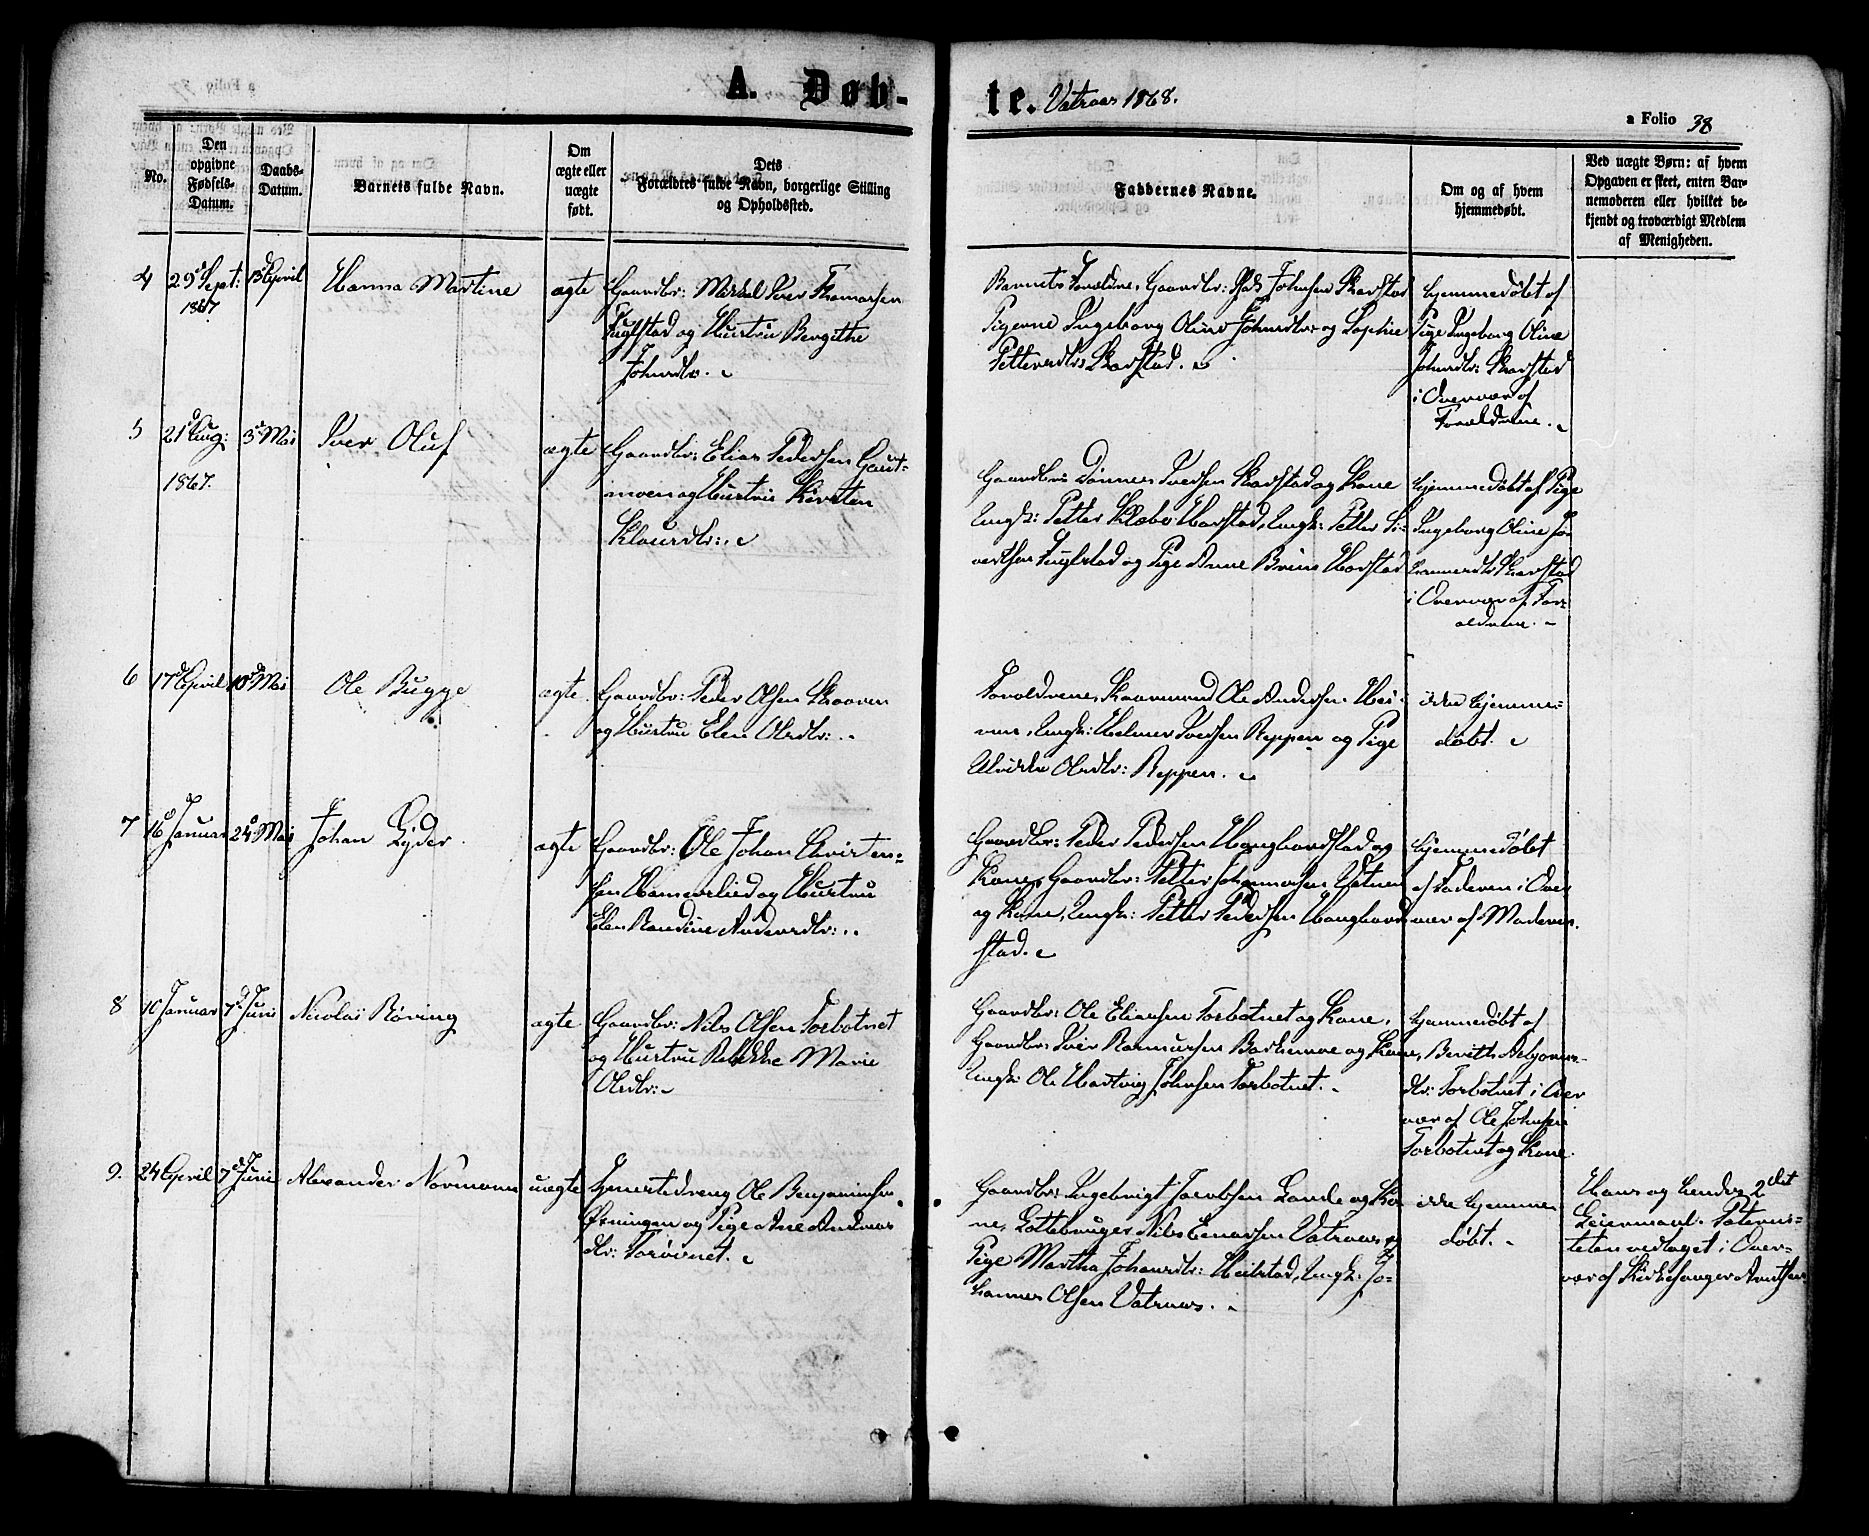 A. Døb-
te. Vatnaas 1868.
a Folio 38
No.
Den
opgivne
Fødsels-
Datum.
Daabs-
Datum.
Barnets fulde Navn.
Om
ægte eller
uægte
født.
Dets
Forældres fulde Navn, borgerlige Stilling
og Opholdssted.
Faddernes Navne.
Om og af hvem
hjemmedøbt.
Ved uægte Børn: af hvem
Opgaven er skeet, enten Bar-
nemoderen eller hvilket be-
kjendt og troværdigt Medlem
af Menigheden.
4
29 Sept:
1867
April
Hanna Martine
ægte
Gaardbr: Mikal Iver Thomassen
Fuglstad og Hustru Bergithe
Johnsdtr.
Barnets Forældre, Gaardbr: Johnsen Skarstad
Pigerne Ingeborg Oline Johnsdtr: og Sophie
Pettersdtr: Skarstad.
hjemmedøbt af
Pige Ingeborg Oline
Johnsdtr: Skarstad
i Overvær af
Forældrene.
5
21 Aug:
1867.
3 Mai
Iver Oluf
ægte
Gaardbr: Elias Pedersen Gaut-
moen og Hustru Kirsten
Klausdtr:.
Gaardbr: Tønnes Iversen Skarstad og Kone
Ungk: Petter Klæbo Harstad, Ungk: Petter Si-
vertsen Fuglstad og Pige Anne Harstad
hjemmedøbt af Pige
Ingeborg Oline Jo-
hannesdtr: Skarstad
i Overvær af For-
ældrene.
6
17 April
10 Mai
Ole Bugge
ægte
Gaardbr: Peder Olsen Skaaren
og Hustru Elen Olsdtr:.
Forældrene, Kaarmand Ole Andersen
Ungk: Helmer Iversen Reppen og Pige
Olsdtr: Reppen.
ikke hjemme-
døbt.
7
16 Januar
24 Mai
Johan Lyder
ægte
Gaardbr: Ole Johan Christen-
sen Hammerlied og Hustru
Elen Randine Andersdtr:.
Gaardbr: Peder Pedersen Haughordstad og
Kone, Gaardbr: Petter Johannessen
og Kone, Ungk: Petter Pedersen Haughord-
stad.
hjemmedøbt
af Faderen i Over-
vær af Moderen.
8
10 Januar
7 Juni
Nicolai Røving
ægte
Gaardbr: Nils Olsen Torbotnet
og Hustru Rebekke Marie
Olsdtr:
Gaardbr: Ole Eliassen Torbotnet og Kone,
Gaardbr: Iver Rasmussen Barkemoe og Kone,
Ungk: Ole Hartvig Johnsen Torbotnet.
hjemmedøbt af
dtr: Torbotnet i Over
vær af Ole Johnsen
Torbotnet og Kone.
9.
24 April
7 Juni
Alexander Normann
uægte
Tjenestedreng Ole Benjaminsen
Øxningen og Pige Ane Andreas
dtr: Torvirnet.
Gaardbr: Ingebrigt Jacobsen Lande og Ko-
ne, Lottebruger Nils Vatnaas og
Pige Martha Johansdtr: Heilstad, Ungk: Jo-
hannes Olsen Vatnaas.
ikke hjemme
døbt.
Hans og hendes 2det
Leiermaal. Paterni-
teten vedtaget i Over-
vær af Kirkesanger Arntsen